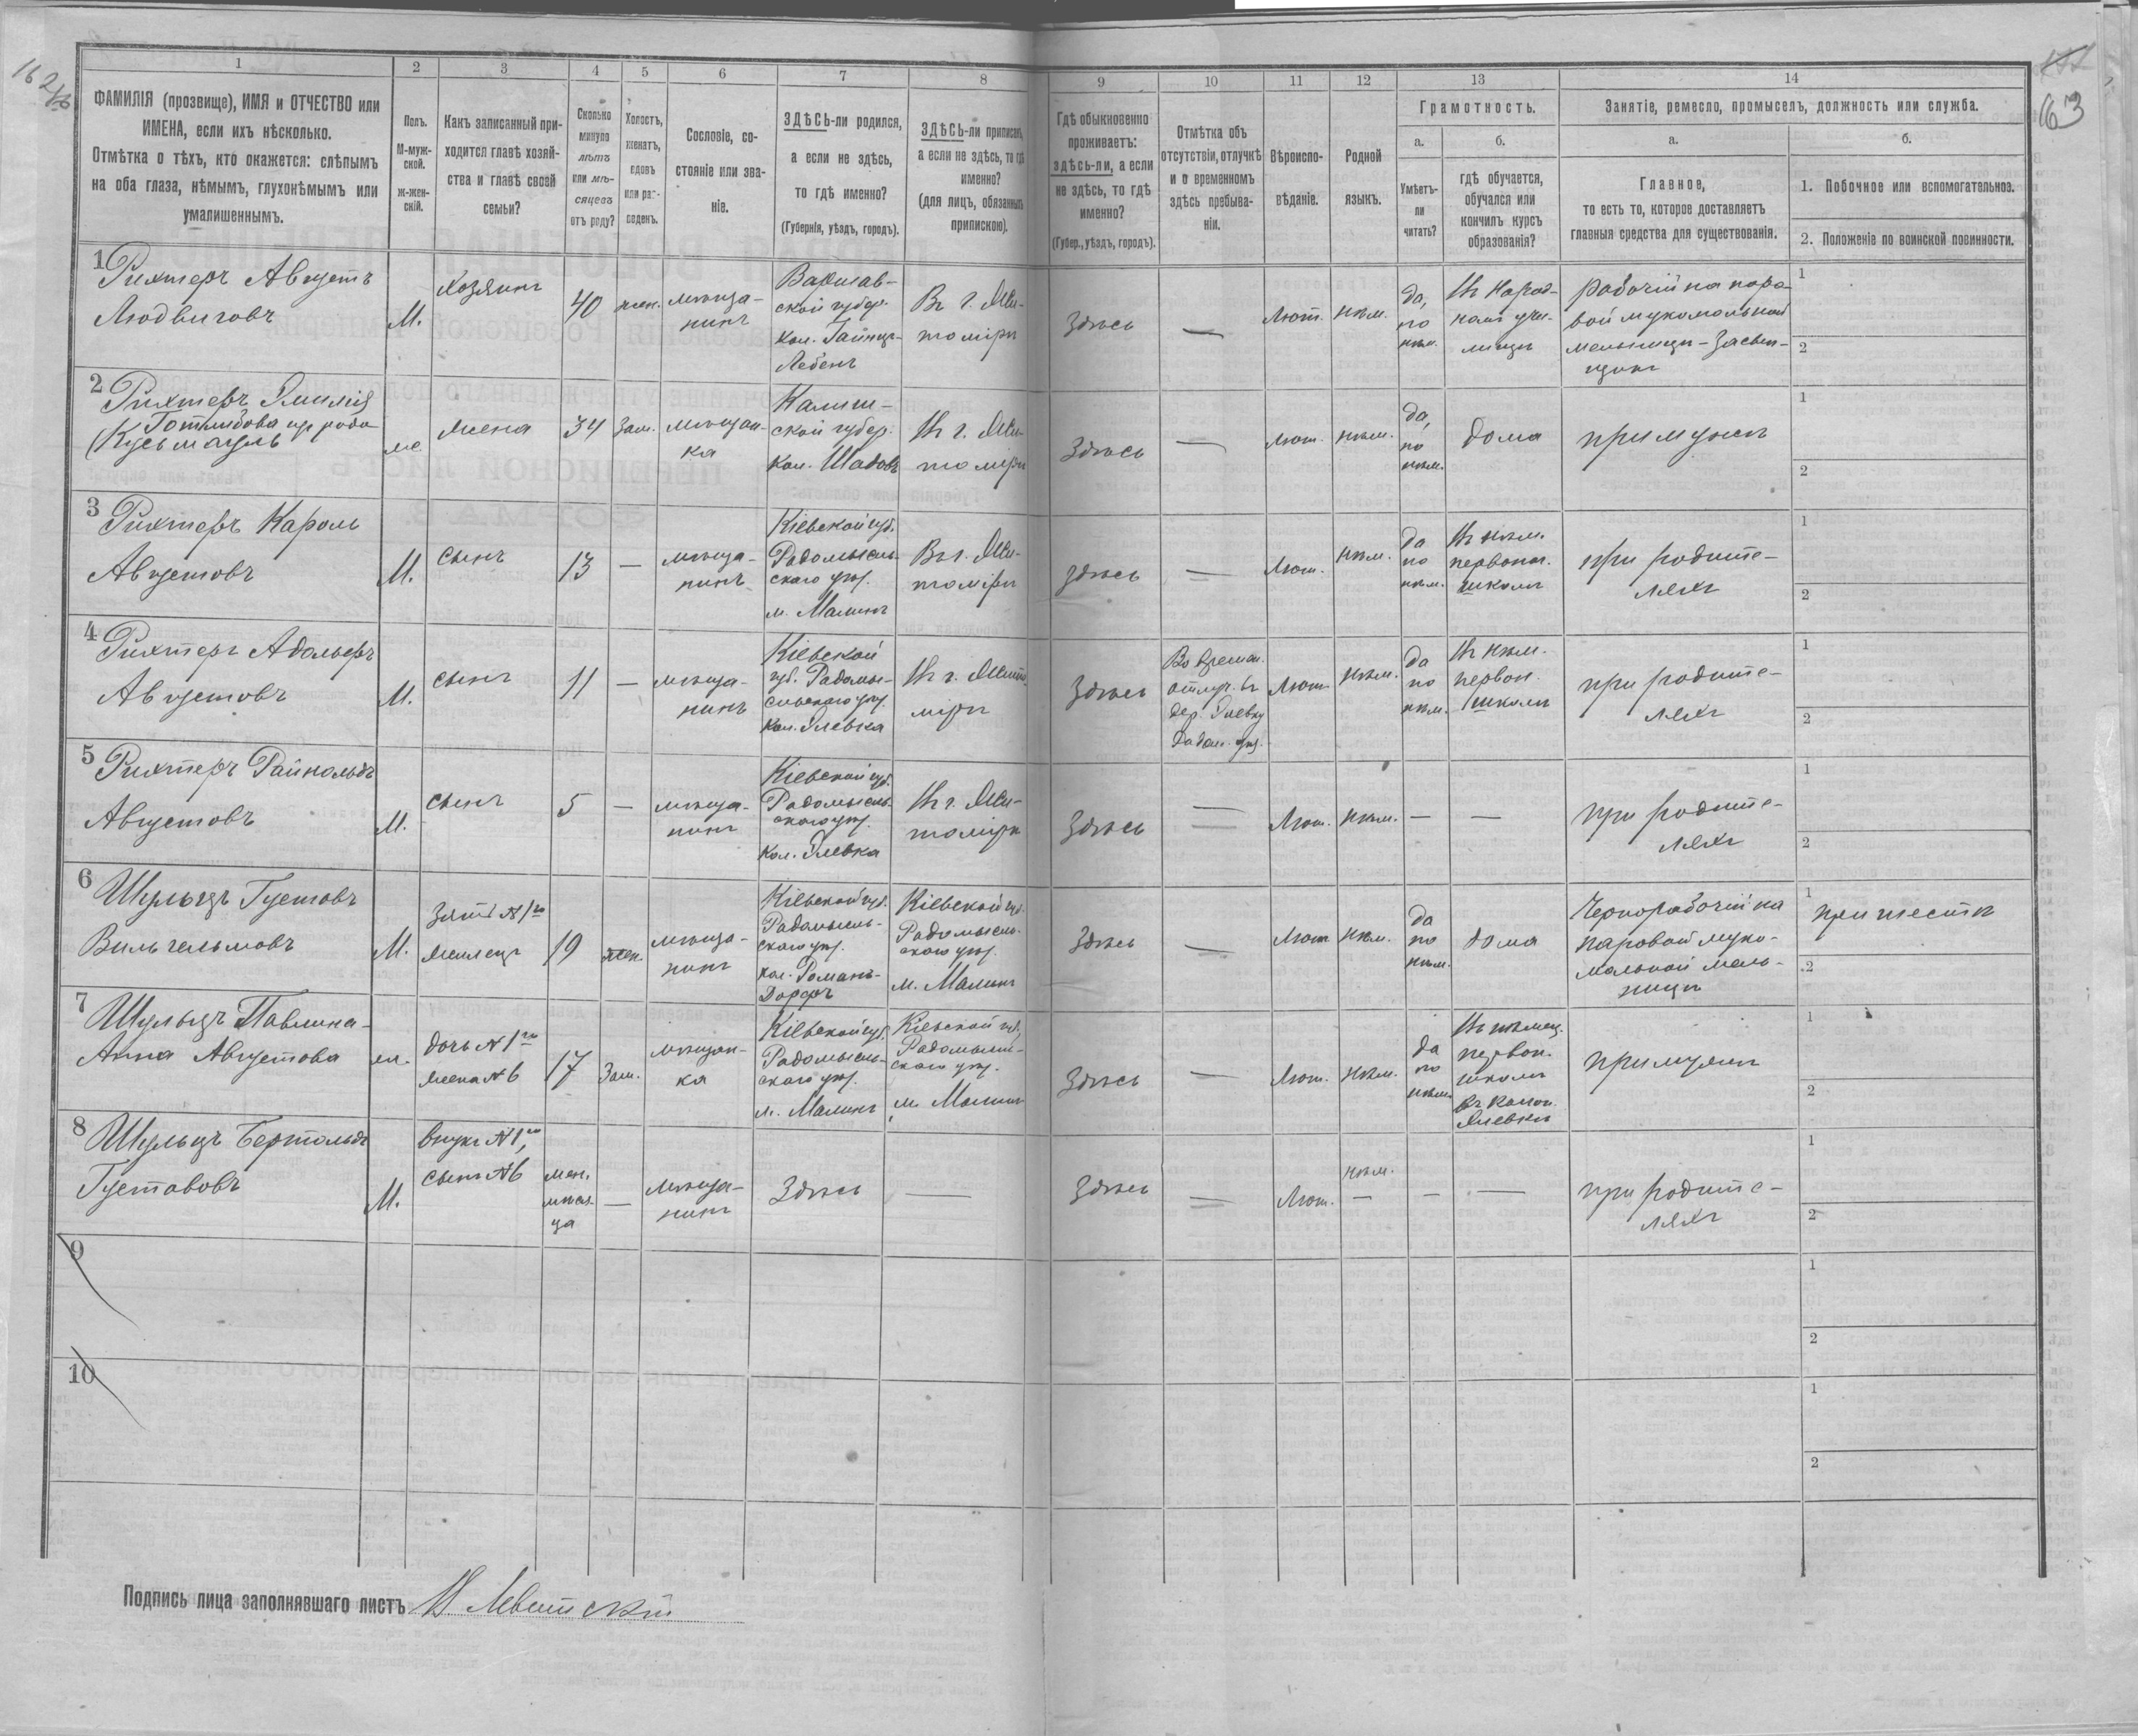 162
163
1 2 3 4 5 6 7 8 9 10 11 12 13 14
ФАМИЛІЯ (прозвище), ИМЯ и ОТЧЕСТВО или
ИМЕНА, если ихъ нѣсколько.
Отмѣтка о тѣхъ, кто окажется: слѣпымъ
на оба глаза, нѣмымъ, глухонѣмымъ или
умалишеннымъ.
Полъ.
М-муж-
ской.
ж-жен-
скій.
Какъ записанный при-
ходится главѣ хозяй-
ства и главѣ своей
семьи?
Сколько
минуло
лѣтъ
или мѣ-
сяцевъ
отъ роду?
Холостъ,
женатъ,
вдовъ
или раз-
веденъ.
Сословіе, со-
стояніе или зва-
ніе.
ЗДѢСЬ-ли родился,
а если не здѣсь,
то гдѣ именно?
(Губернія, уѣздъ, городъ).
ЗДѢСЬ-ли приписанъ,
а если не здѣсь, то гдѣ
именно?
(для лицъ, обязанныхъ
припискою).
Гдѣ обыкновенно
проживаетъ:
здѣсь-ли, а если
не здѣсь, то гдѣ
именно?
(Губер., уѣздъ, городъ).
Отмѣтка объ
отсутствіи, отлучкѣ
и о временномъ
здѣсь пребыва-
ніи.
Вѣроиспо-
вѣданіе.
Родной
языкъ.
Грамотность.
а.
Умѣетъ-
ли
читать?
б.
гдѣ обучается,
обучался или
кончилъ курсъ
образованія?
Занятіе, ремесло, промыселъ, должность или служба.
а.
Главное,
то есть то, которое доставляетъ
главныя средства для существованія.
б.
1. Побочное или вспомогательноа.
2. Положеніе по воинской повинности.
1
Рихтеръ Августъ
Людвиговъ
М.
Хозяинъ
40
жен.
мѣща-
нинъ
Варшав-
ской губер.
кол. Гайнцъ-
Лебенъ
Въ г. Жи-
томірѣ
Здѣсь
—
Лют.
нѣм.
да,
по
нѣм.
Въ Народ-
номъ учи-
лищѣ
рабочій на паро-
вой мукомольной
мельницѣ - Засып-
щикъ
1
2
2
Рихтеръ Эмилія
Готлибова ур. рода
(Кусьмауль
ж
жена
34
Зам.
мѣщан-
ка
Калиш-
ской губер.
кол. Шадовъ
Въ г. Жи-
томірѣ
Здѣсь
—
Лют.
нѣм.
да,
по
нѣм.
дома
при мужѣ
1
2
3
Рихтеръ Кароль
Августовъ
М.
сынъ
13
—
мѣща-
нинъ
Кіевской губ.
Радомысль-
скаго уѣз.
м. Малинъ
Въ г. Жи-
томірѣ
здѣсь
—
Лют.
нѣм.
да
по
нѣм.
Въ нѣм.
первонач.
школѣ
при родите-
ляхъ
1
2
4
Рихтеръ Адольфъ
Августовъ
М.
сынъ
11
—
мѣща-
нинъ
Кіевской
губ. Радомы-
сльскаго уѣз.
кол. Элевка
Въ г. Жито-
мірѣ
Здѣсь
Во времен.
отлуч. въ
дер. Элевку
Радом. уѣз.
Лют.
нѣм.
да
по
нѣм.
Въ нѣм.
первон.
школѣ
при родите-
ляхъ
1
2
5
Рихтеръ Райнольдъ
Августовъ
М.
сынъ
5
—
мѣща-
нинъ
Кіевской губ.
Радомысль-
скаго уѣз.
кол. Элевка
Въ г. Жи-
томірѣ
Здѣсь
—
Лют.
нѣм.
—
—
при родите-
ляхъ
1
2
6
Шульцъ Густавъ
Вильгельмовъ
М.
зять №1го
жилецъ
19
жен.
мѣща-
нинъ
Кіевской губ.
Радомысль-
скаго уѣз.
кол. Романъ-
Дорфъ
Кіевской губ.
Радомысль-
скаго уѣз.
м. Малинъ
Здѣсь
—
Лют.
нѣм.
да
по
нѣм.
дома
Чернорабочій на
паровой муко-
мольной мель-
ницѣ
1
при тестѣ
2
7
Шульцъ Павлина-
Анна Августова
ж.
дочь №1го
жена №6
17
Зам.
мѣщан-
ка
Кіевской губ.
Радомысль-
скаго уѣз.
м. Малинъ
Кіевской губ.
Радомысль-
скаго уѣз.
м. Малинъ
Здѣсь
—
Лют.
нѣм.
да
по
нѣм.
Въ нѣмец.
первон.
школѣ
въ колон.
Элевкѣ
при мужѣ
1
2
8
Шульцъ Бертольдъ
Густавовъ
М.
внукъ №1го,
сынъ №6
мен.
мѣся-
ца
—
мѣща-
нинъ
Здѣсь
—
Здѣсь
—
Лют.
нѣм.
—
—
—
при родите-
ляхъ
1
2
9
1
2
10
1
2
Подпись лица заполнявшаго листъ Левитскій